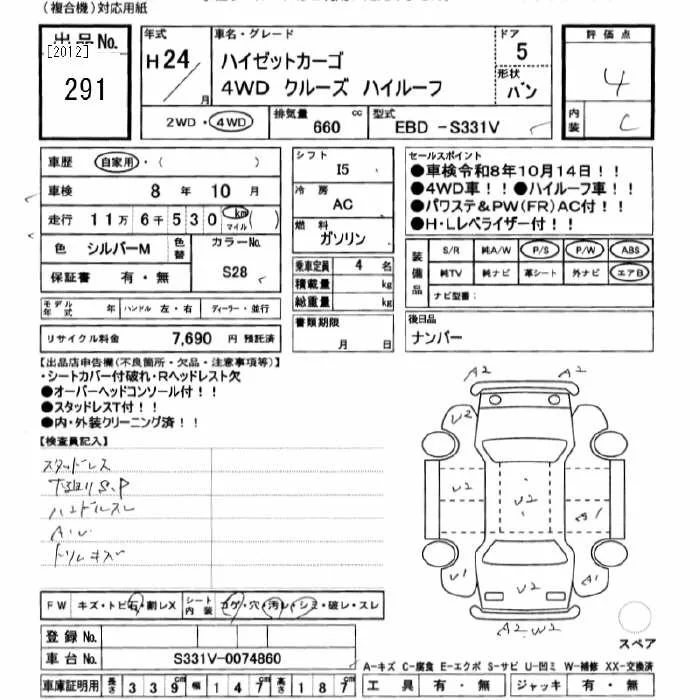 (複合機)対応用紙
出品No.
[2012]
291
年式
H24
月
車名・グレード
ハイゼットカーゴ
4WD クルーズ ハイルーフ
ドア
5
形状
バン
評価点
4
内装
C
2WD・4WD
排気量
660
cc
型式
EBD -S331V
車歴
自家用・( )
車検
8 年 10 月
走行
11万 6千530
km
マイル
( )
色
シルバーM
色替
カラーNo.
S28
保証書
有・無
シフト
I5
冷房
AC
燃料
ガソリン
乗車定員
4 名
積載量
kg
総重量
kg
セールスポイント
●車検令和8年10月14日!!
●4WD車!!●ハイルーフ車!!
●パワステ&PW(FR)AC付!!
●H・Lレベライザー付!!
装備品
S/R 純A/W P/S P/W ABS
純TV 純ナビ 革シート 外ナビ エアB
ナビ型番:
モデル年式
年
ハンドル 左・右
ディーラー・並行
リサイクル料金
7,690 円 預託済
書類期限
月 日
後日品
ナンバー
【出品店申告欄(不良箇所・欠品・注意事項等)】
・シートカバー付破れ・Rヘッドレスト欠
●オーバーヘッドコンソール付!!
●スタッドレスT付!!
●内・外装クリーニング済!!
【検査員記入】
スタッドレス
下廻りS.P
ハンドルスレ
A.U
ドリルキズ
A2
A2
U2
A2
U2
U2
A1
U1
U2
A1
A2.W2
FW
キズ・トビ石・割レX
シート内装
コゲ・穴・汚レ・シミ・破レ・スレ
登録No.
車台No.
S331V-0074860
スペア
A-キズ C-腐食 E-エクボ S-サビ U-凹ミ W-補修 XX-交換済
車庫証明用
長さ
339
cm
幅
147
cm
高さ
187
cm
工具
有・無
ジャッキ
有・無